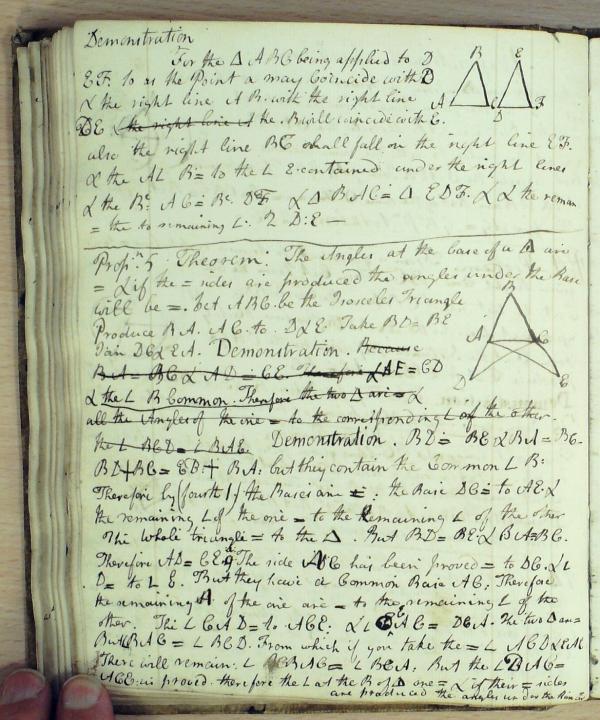 Demonstration
For the Δ ABC being applied to D
EF. so as the Point a may Coincide with D
& the right line AB. with the right line
DE (the right line A the. B will coincide with E.
also the right line BC shall fall on the right line EF.
& the AL B= to the L E contained under the right lines
& the Bc. AC = Bc. DF. & Δ BAC = Δ EDF. & the reman
= the to remaining L: D:E —
B E
A C D F
Prop.n 5 Theorem: The Angles at the base of a Δ are
= & if the = sides are produced the angles under the Base
will be =. Let ABC. be the Isosceles Triangle
Produce BA. AC. to. D&E. Take BD = BE
Join DC&EA. Demonstration. Because
BA = BC & AD = CE. Therefore & AE = CD
& the L B Common. Therefore the two Δ are = &
all the Angles of the one = to the corresponding L of the other.
the L BCD = L BAE. Demonstration. BD = BE & BA = BC.
BD+BC = EB+ BA: but they contain the Common L B:
Therefore by (fourth 1) the Bases are =: the Base DC = to AE. &
the remaining L of the one = to the Remaining L of the other
The Whole triangle = to the Δ. But BD = BE. & BA=BC.
Therefore AD = CE. The side has been proved = to DC. & L
D = to L E. But they have a Common Base AC, Therefore
the remaining of the one are = to the remaining L of the
other. The L CAD = to ACE: & L EAC = DCA. The two Δ are =
But BAC = L BCD. From which if you take the = L ACD & EAC
There will remain: L BAC = L BCA: But the L DAC =
ACE is proved. therefore the L at the B of Δ are = & if their = sides
are produced the angles under the
B
A C
D E